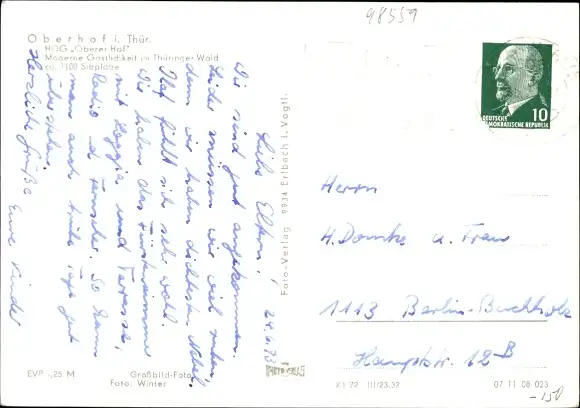 98559
Oberhof i. Thür.
HOG „Oberer Hof"
Moderne Gastlichkeit im Thüringer Wald
ca. 1100 Sitzplätze
24.4.73
Liebe Eltern!
Wir sind gut angekommen.
Leider müssen wir viel ruhen,
denn wir haben dichtesten Nebel.
Olaf fühlt sich sehr wohl.
Wir haben das Fürstenzimmer
mit Loggia und Terrasse,
Radio u. Fernseher. So kann
man auch trübe Tage gut
überstehen.
Herzliche Grüße
Eure Kinder
EVP -,25 M
Großbild-Foto
Foto: Winter
Foto-Verlag 9934 Erlbach i. Vogtl.
DEUTSCHE
DEMOKRATISCHE REPUBLIK
10
Herrn
H. Domke u. Frau
1113 Berlin-Buchholz
Hauptstr. 12 B
X1 72 III/23.32
07 11 08 023
-150